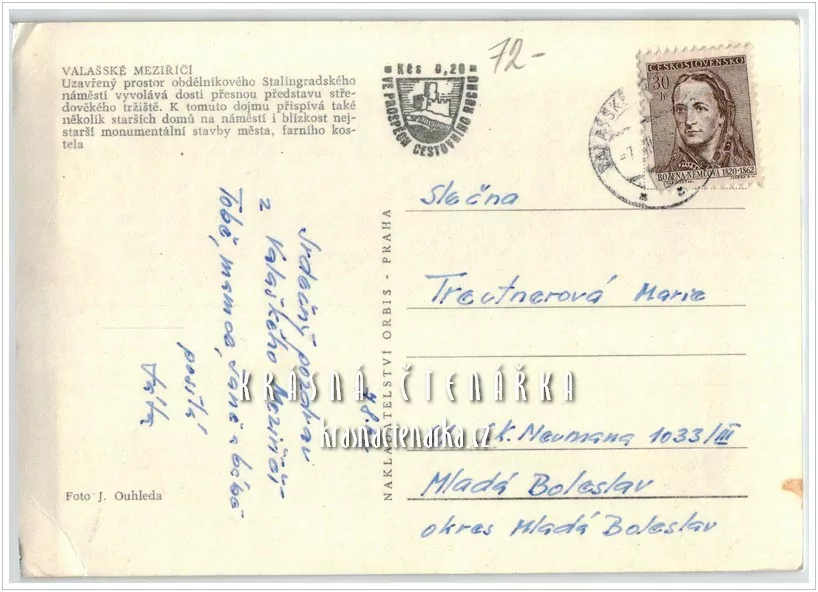 VALAŠSKÉ MEZIŘÍČÍ
Uzavřený prostor obdélníkového Stalingradského
náměstí vyvolává dosti přesnou představu stře-
dověkého tržiště. K tomuto dojmu přispívá také
několik starších domů na náměstí i blízkost nej-
starší monumentální stavby města, farního kos-
tela
Kčs 0,20
VE PROSPĚCH CESTOVNÍHO RUCHU
72-
ČESKOSLOVENSKO
30
BOŽENA NĚMCOVÁ 1820-1862
VALAŠSKÉ
Srdečný pozdrav
z Valašského Meziříčí
Tobě, mamce, Janě a babě
posílá
táta
NAKLADATELSTVÍ ORBIS - PRAHA
Slečna
Treutnerová Marie
K. Neumana 1033/III
Mladá Boleslav
okres Mladá Boleslav
KRÁSNÁ ČTENÁŘKA
krasnactenarka.cz
Foto J. Ouhleda